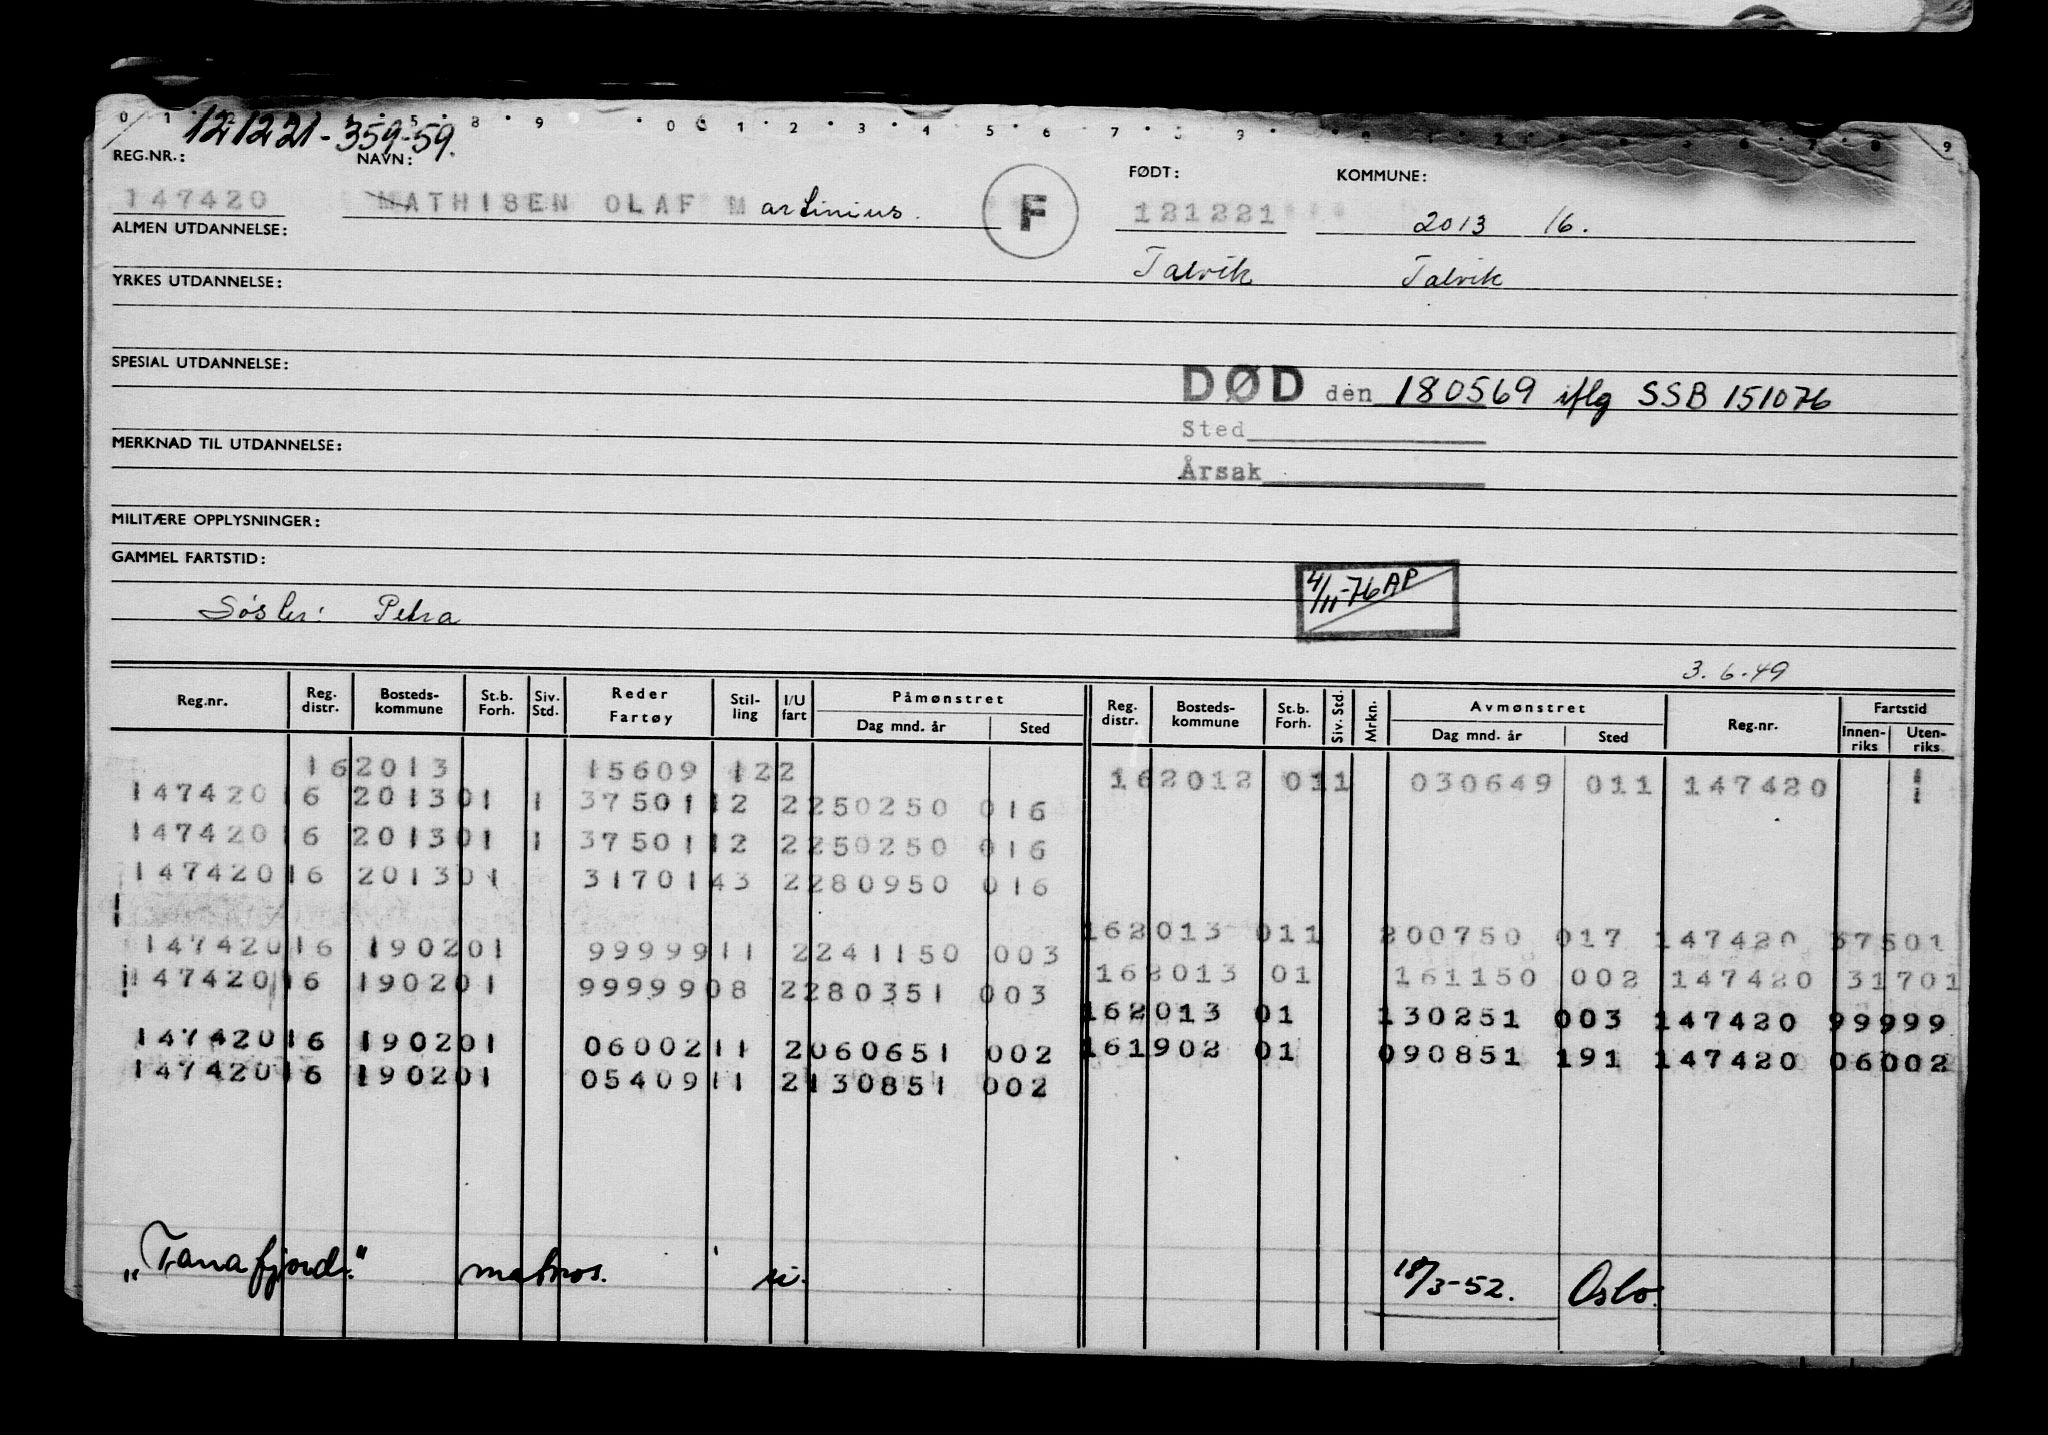 0 1 2 5 8 9 0 6 1 2 3 4 5 6 7 3 9 9
121221-359-59.
REG.NR.: NAVN: FØDT: KOMMUNE:
147420 MATHISEN OLAF Martinius. F 121221 2013 16.
ALMEN UTDANNELSE:
Talvik Talvik
YRKES UTDANNELSE:
SPESIAL UTDANNELSE:
DØD den 180569 iflg SSB 151076
Sted
MERKNAD TIL UTDANNELSE:
Årsak
MILITÆRE OPPLYSNINGER:
GAMMEL FARTSTID:
4/11-76 AP
Søster: Petra
3.6.49
Reg.nr. Reg. distr. Bosteds-kommune St.b. Forh. Siv. Std. Reder Fartøy Stil-ling I/U fart Påmønstret Dag mnd. år Sted Reg. distr. Bosteds-kommune St.b. Forh. Siv. Std. Mrkn. Avmønstret Dag mnd. år Sted Reg.nr. Fartstid Innen-riks Uten-riks
162013 15609 122 162012 011 030649 011 147420
147420 16 2013 01 1 37501 12 2 250250 016
147420 16 2013 01 1 37501 12 2 250250 016
147420 16 2013 01 31701 43 2 280950 016
162013 011 200750 017 147420 37501
147420 16 1902 01 99999 11 2 241150 003
162013 01 161150 002 147420 31701
147420 16 1902 01 99999 08 2 280351 003
162013 01 130251 003 147420 99999
147420 16 1902 01 06002 11 2 060651 002
161902 01 090851 191 147420 06002
147420 16 1902 01 05409 11 2 130851 002
"Tanafjord." matros. u. 18/3-52. Oslo.